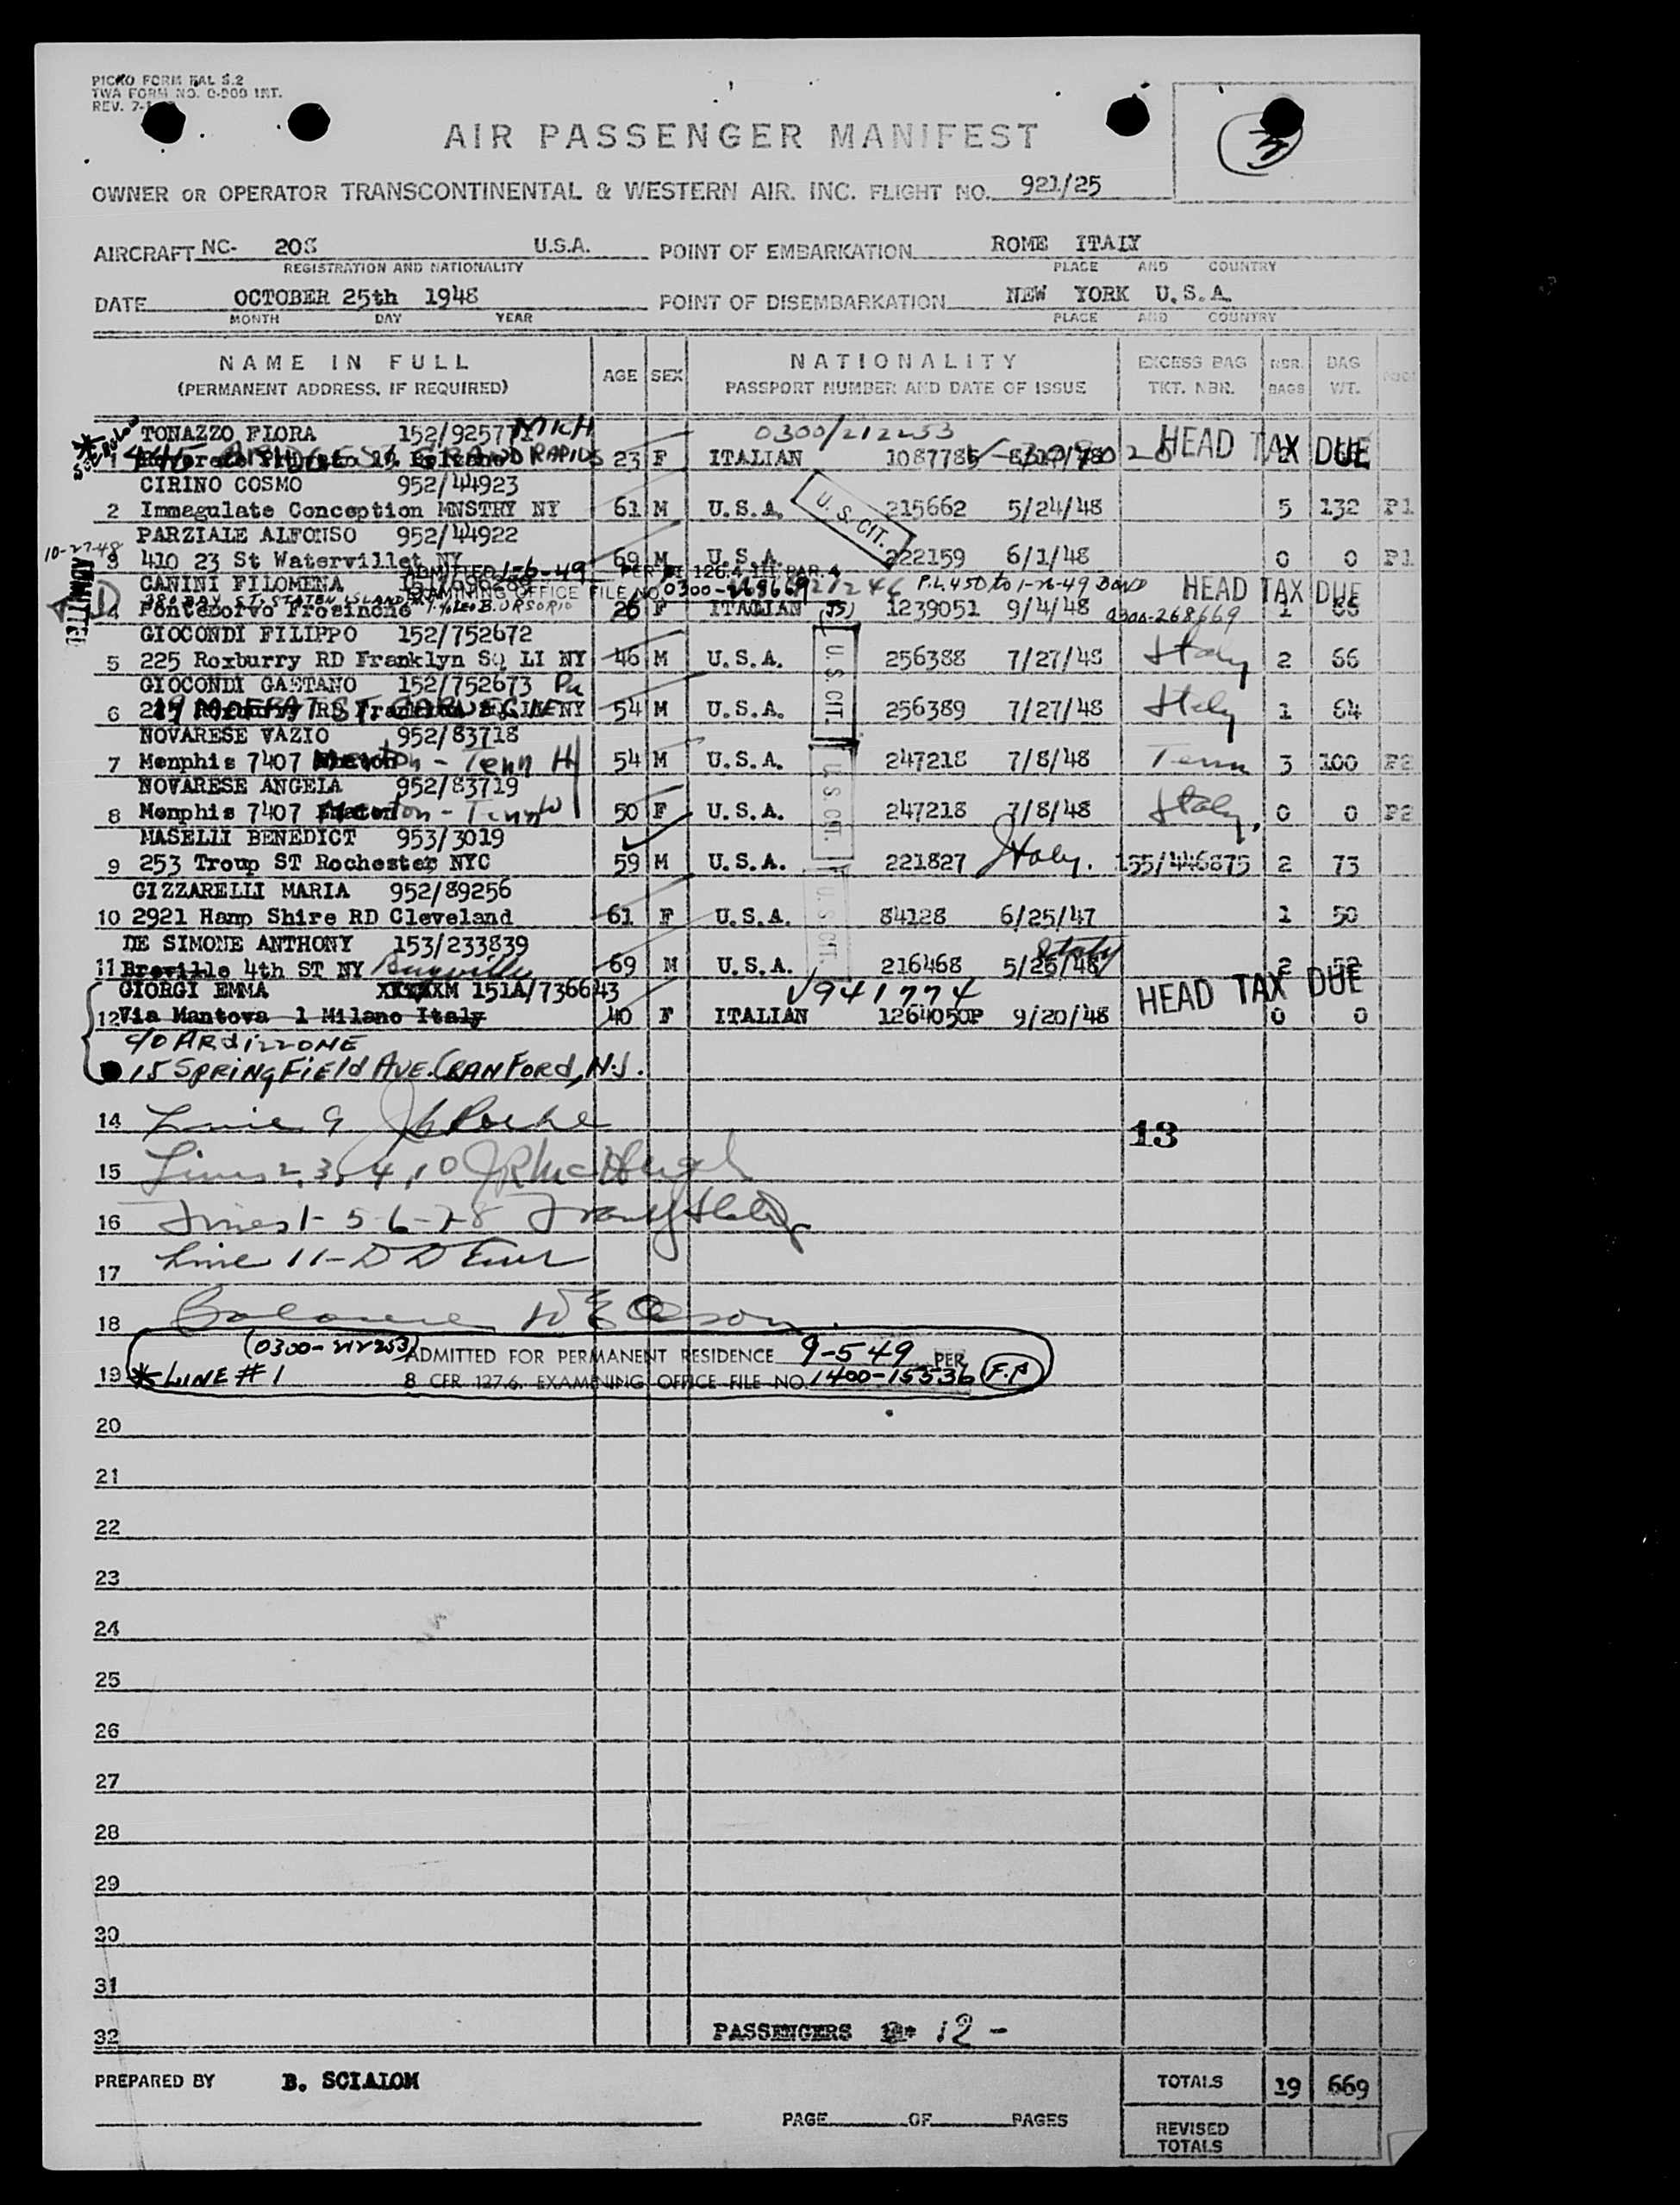 PICAO FORM BAL S.2
TWA FORM NO. 0-900 INT.
REV.
3
AIR PASSENGER MANIFEST
OWNER OR OPERATOR TRANSCONTINENTAL & WESTERN AIR. INC. FLIGHT NO. 921/25
AIRCRAFT NC- 208 U.S.A. POINT OF EMBARKATION ROME ITALY
REGISTRATION AND NATIONALITY PLACE AND COUNTRY
DATE OCTOBER 25th 1948 POINT OF DISEMBARKATION NEW YORK U.S.A.
MONTH DAY YEAR PLACE AND COUNTRY
NAME IN FULL AGE SEX NATIONALITY EXCESS BAG NBR. BAG
(PERMANENT ADDRESS, IF REQUIRED) PASSPORT NUMBER AND DATE OF ISSUE TKT. NBR. BAGS WT.
TONAZZO FLORA 152/925771 MICH 0300/212253 HEAD TAX DUE
1 445 BRIDGE ST GRAND RAPIDS 23 F ITALIAN 1087785
CIRINO COSMO 952/44923
2 Immagulate Conception MNSTRY NY 61 M U.S.A. U.S. CIT. 215662 5/24/48 5 132 P1
PARZIALE ALFONSO 952/44922
10-27-48
3 410 23 St Watervillet NY 69 M U.S.A. 222159 6/1/48 0 0 P1
ADMITTED
ADMITTED 1-6-49 PER
CANINI FILOMENA P.L. 450 to 1-26-49 BOND HEAD TAX DUE
EXAMINING OFFICE FILE NO. 0300-268669
380 BAY ST. STATEN ISLAND
4 Pontecorvo Frosinone 26 F ITALIAN (JS) 1239051 9/4/48 0300-268669 1 66
GIOCONDI FILIPPO 152/752672
5 225 Roxburry RD Franklyn SQ LI NY 46 M U.S.A. U.S. CIT. 256388 7/27/48 Italy 2 66
GIOCONDI GAETANO 152/752673 Pa
6 54 M U.S.A. 256389 7/27/48 Italy 1 64
NOVARESE VAZIO 952/83718
7 Menphis 7407 - Tenn 54 M U.S.A. U.S. CIT. 247218 7/8/48 Tenn 3 100 P2
NOVARESE ANGELA 952/83719
8 Menphis 7407 - Tenn 50 F U.S.A. 247218 7/8/48 Italy 0 0 P2
MASELLI BENEDICT 953/3019
9 253 Troup ST Rochester NYC 59 M U.S.A. 221827 Italy. 155/446875 2 73
GIZZARELLI MARIA 952/89256
10 2921 Hamp Shire RD Cleveland 61 F U.S.A. U.S. CIT. 84128 6/25/47 1 50
DE SIMONE ANTHONY 153/233839 Italy
11 Breville 4th ST NY 69 M U.S.A. 216468 5/25/48 2 52
GIORGI EMMA 151A/736643 941774 HEAD TAX DUE
12 Via Mantova 1 Milano Italy 40 F ITALIAN 1264050P 9/20/48 0 0
c/o ARDIZZONE
15 SPRINGFIELD AVE. CRANFORD, N.J.
14 Line 9 13
15 Lines 2, 3, 4, 10
16 Lines 1-5-6-7-8
Line 11-
17
18
(0300-212253) ADMITTED FOR PERMANENT RESIDENCE 9-5-49 PER
19 * LINE # 1 8 CFR 127.6. EXAMINING OFFICE FILE NO. 1400-15536 F.P
20
21
22
23
24
25
26
27
28
29
30
31
32 PASSENGERS 12 -
PREPARED BY B. SCIALOM TOTALS 19 669
PAGE OF PAGES REVISED
TOTALS